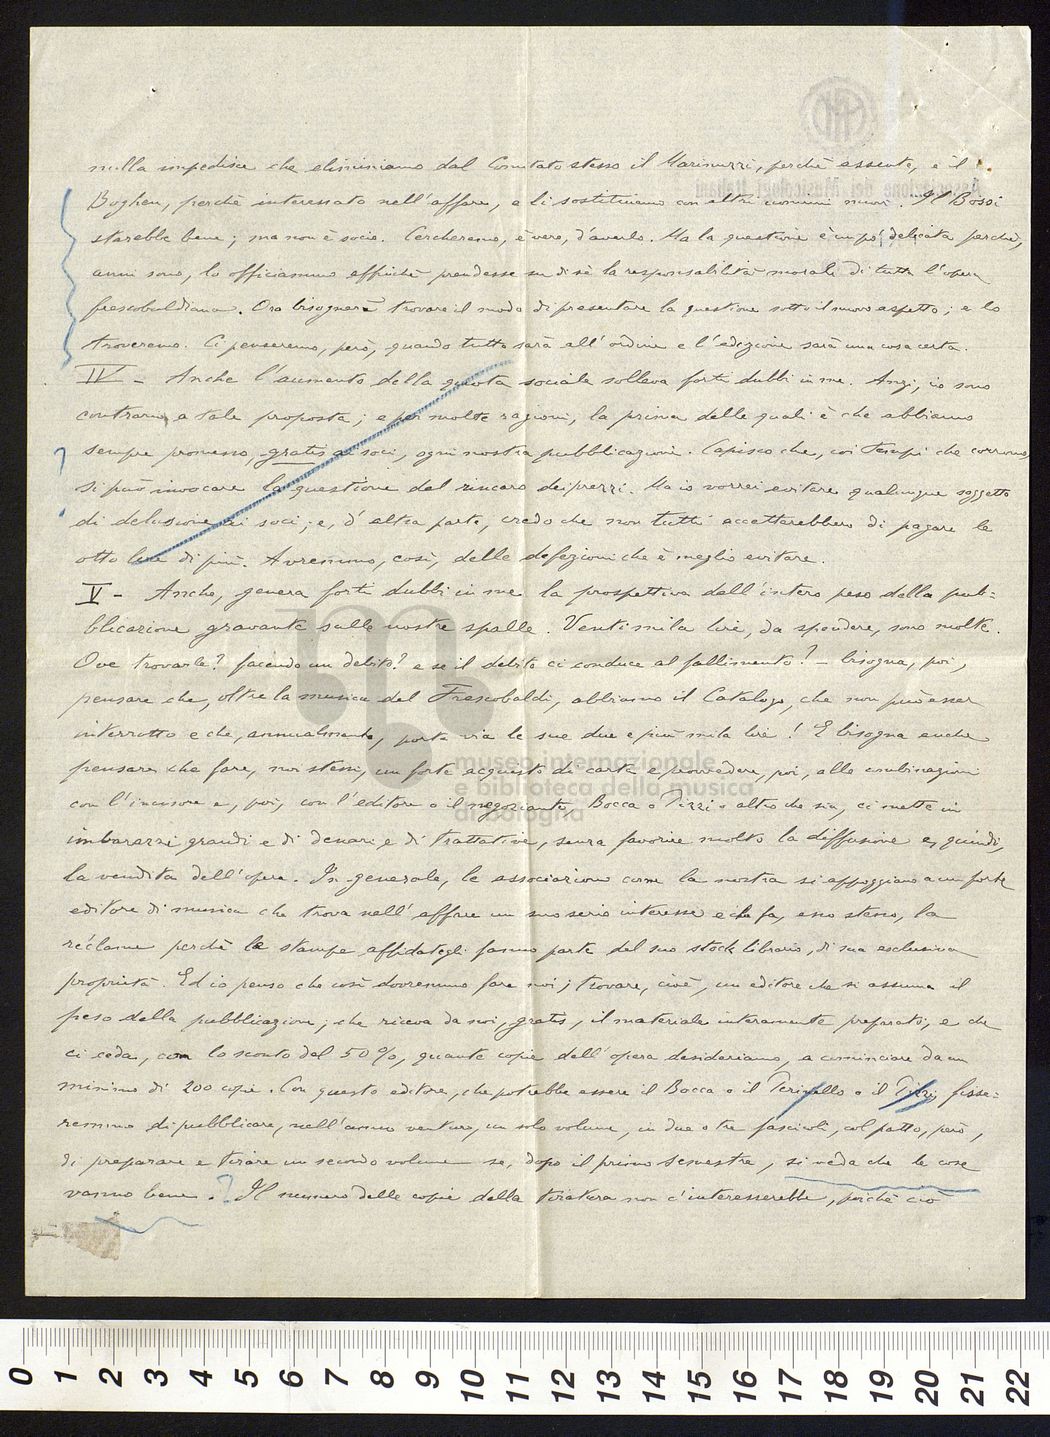 nulla impedisce che eliminiamo dal Comitato stesso il Marinuzzi, perchè assente, e il
Boghen, perchè interessato nell'affare, e li sostituiamo con altri uomini nuovi. Il Bossi
starebbe bene; ma non è socio. Cercheremo, è vero, d'averlo. Ma la questione è un pò delicata perchè,
anni sono, lo officiammo affinchè prendesse su di sè la responsabilità morale di tutta l'opera
frescobaldiana. Ora bisognerà trovare il modo di presentare la questione sotto il nuovo aspetto; e lo
troveremo. Ci penseremo, però, quando tutto sarà all'ordine e l'edizione sarà una cosa certa.
IV - Anche l'aumento della quota sociale solleva forti dubbi in me. Anzi, io sono
contrario a tale proposta; e per molte ragioni, la prima delle quali è che abbiamo
sempre promesso, gratis ai soci, ogni nostra pubblicazione. Capisco che, coi tempi che corrono,
si può invocare la questione del rincaro dei prezzi. Ma io vorrei evitare qualunque soggetto
di delusione ai soci; e, d'altra parte, credo che non tutti accetterebbero di pagare le
otto lire di più. Avremmo, così, delle defezioni che è meglio evitare.
V - Anche, genera forti dubbi in me la prospettiva dell'intero peso della pub=
blicazione gravante sulle nostre spalle. Ventimila lire, da spendere, sono molte.
Ove trovarle? facendo un debito? e se il debito ci conduce al fallimento? - bisogna, poi,
pensare che, oltre la musica del Frescobaldi, abbiamo il Catalogo, che non può esser
interrotto e che, annualmente, porta via le sue due e più mila lire! E bisogna anche
pensare che fare, noi stessi, un forte acquisto di carta e provvedere, poi, alle combinazioni
con l'incisore e, poi, con l'editore o il negoziante, Bocca o Pizzi o altro che sia, ci mette in
imbarazzi grandi e di denari e di trattative, senza favorire molto la diffusione e, quindi,
la vendita dell'opera. In generale, le associazioni come la nostra si appoggiano a un forte
editore di musica che trova nell'affare un suo serio interesse e che fa, esso stesso, la
réclame perchè le stampe affidategli fanno parte del suo stock librario, di sua esclusiva
proprietà. Ed io penso che così dovremmo fare noi; trovare, cioè, un editore che si assuma il
peso della pubblicazione; che riceva da noi, gratis, il materiale interamente preparato, e che
ci ceda, con lo sconto del 50%, quante copie dell'opera desideriamo, a cominciare da un
minimo di 200 copie. Con questo editore, che potrebbe essere il Bocca o il o il Pizzi, fisse=
remmo di pubblicare, nell'anno venturo, un solo volume, in due o tre fascicoli, col patto, però,
di preparare e tirare un secondo volume se, dopo il primo semestre, si veda che le cose
vanno bene. ? Il numero delle copie della tiratura non c'interesserebbe, poichè ciò
Associazione dei Musicologi Italiani
museo internazionale
e biblioteca della musica
di bologna
0 1 2 3 4 5 6 7 8 9 10 11 12 13 14 15 16 17 18 19 20 21 22